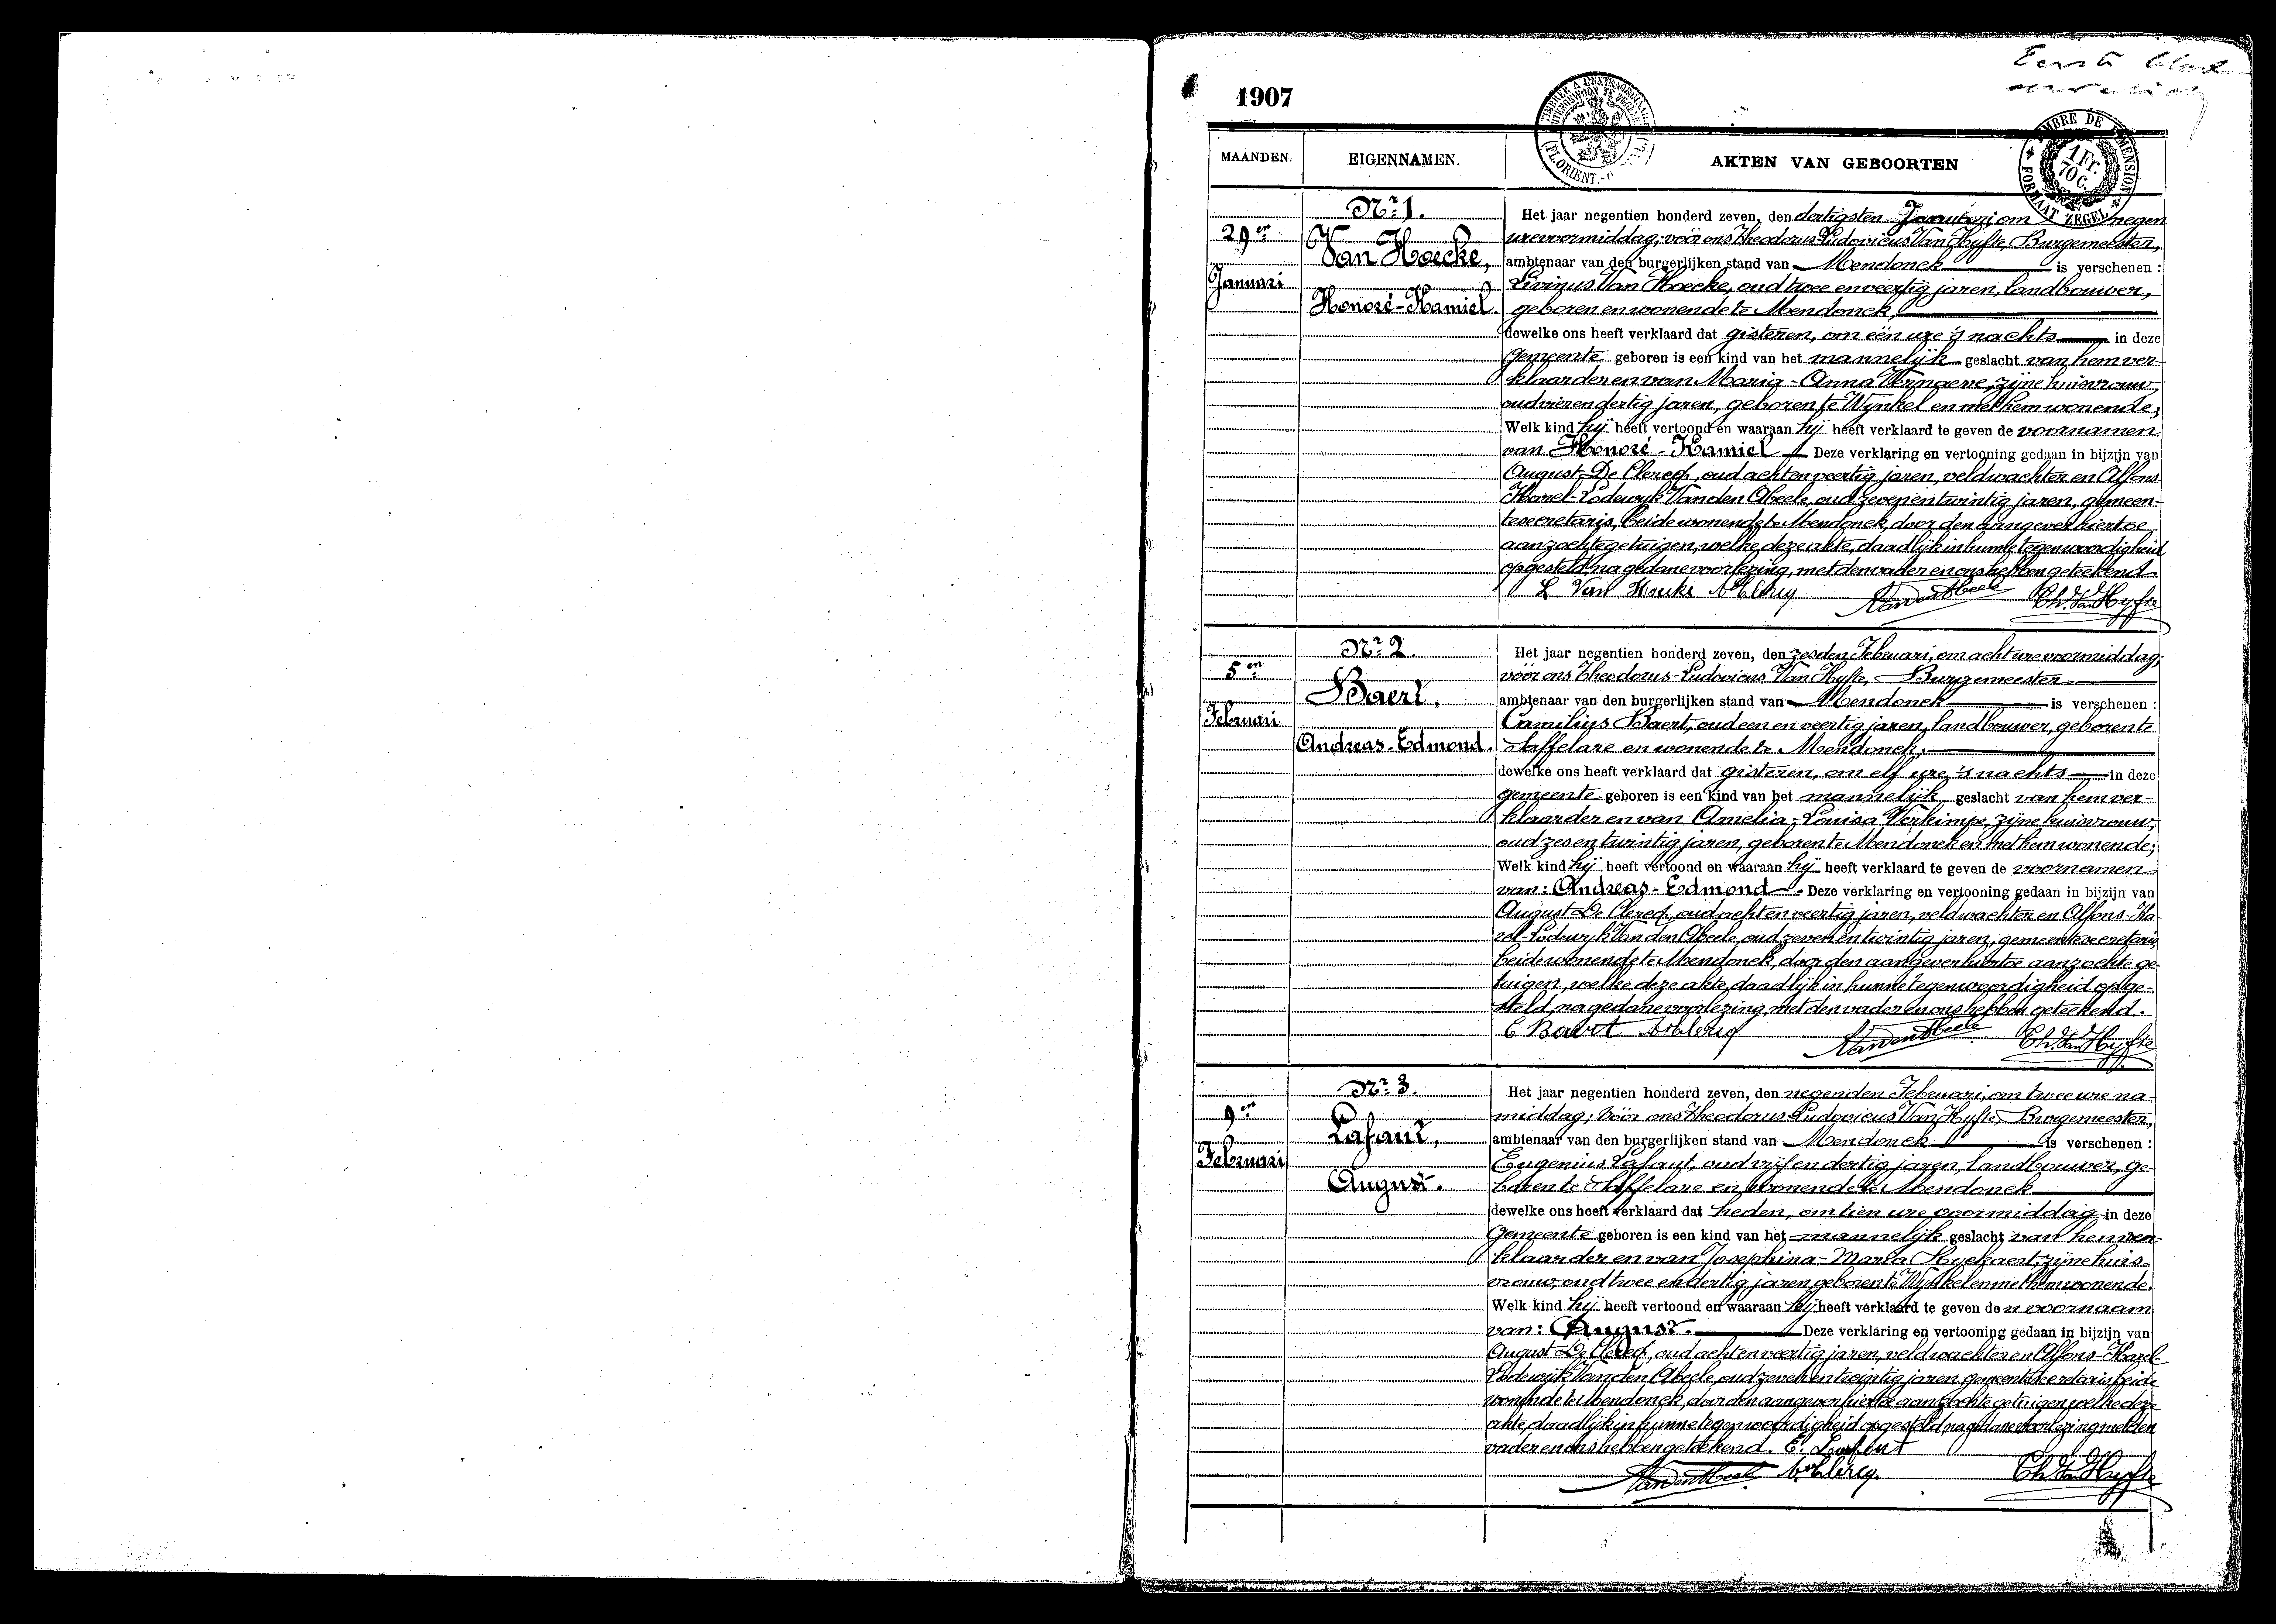 Eerste blad
1907
TIMBRE DE DIMENSION
1 Fr.
70 C.
FORMAAT ZEGEL
MAANDEN.
EIGENNAMEN.
AKTEN VAN GEBOORTEN
Nr 1.
29en
Januari
Van Hoecke,
Honoré-Kamiel.
Het jaar negentien honderd zeven, den dertigsten Januari om negen
ure voormiddag; vóór ons Theodorus-Ludovicus Van Hyfte, Burgemeester,
ambtenaar van den burgerlijken stand van Mendonck is verschenen :
Livinus Van Hoecke, oud twee en veertig jaren, landbouwer,
geboren en wonende te Mendonck,
dewelke ons heeft verklaard dat gisteren, om één ure 's nachts in deze
gemeente geboren is een kind van het mannelijk geslacht van hem ver-
klaarder en van Maria-Anna Vernaeve, zijne huisvrouw,
oud vier en dertig jaren, geboren te Wynkel en met hem wonende;
Welk kind hij heeft vertoond en waaraan hij heeft verklaard te geven de voornamen
van Honoré-Kamiel Deze verklaring en vertooning gedaan in bijzijn van
August De Clercq, oud acht en veertig jaren, veldwachter en Alfons-
Karel-Lodewyk Van den Abeele, oud zeven en twintig jaren, gemeen-
tesecretaris, beide wonende te Mendonck, door den aangever hiertoe
aanzochte getuigen, welke deze akte, daadlijk in hunne tegenwoordigheid
opgesteld, na gedane voorlezing, met den vader en ons hebben geteekend.
L Van Hoecke A De Clercq A Van den Abeele Th. Van Hyfte
Nr 2.
5en
Februari
Baert.
Andreas-Edmond.
Het jaar negentien honderd zeven, den zesden Februari, om acht ure voormiddag;
vóór ons Theodorus-Ludovicus Van Hyfte, Burgemeester
ambtenaar van den burgerlijken stand van Mendonck is verschenen :
Camilius Baert, oud een en veertig jaren, landbouwer, geboren te
Saffelare en wonende te Mendonck,
dewelke ons heeft verklaard dat gisteren, om elf ure 's nachts in deze
gemeente geboren is een kind van het mannelijk geslacht van hem ver-
klaarder en van Amelia-Louisa Verkimpe, zijne huisvrouw,
oud zes en twintig jaren, geboren te Mendonck en met hem wonende;
Welk kind hij heeft vertoond en waaraan hij heeft verklaard te geven de voornamen
van: Andreas-Edmond. Deze verklaring en vertooning gedaan in bijzijn van
August De Clercq, oud acht en veertig jaren, veldwachter en Alfons-Ka-
rel-Lodewyk Van den Abeele, oud zeven en twintig jaren, gemeentesecretaris,
beide wonende te Mendonck, door den aangever hiertoe aanzochte ge-
tuigen, welke deze akte, daadlijk in hunne tegenwoordigheid opge-
steld, na gedane voorlezing, met den vader en ons hebben geteekend.
C Baert A De Clercq A Van den Abeele Th. Van Hyfte
Nr 3.
9en
Februari
Lafaut,
August.
Het jaar negentien honderd zeven, den negenden Februari, om twee ure na-
middag; vóór ons Theodorus Ludovicus Van Hyfte, Burgemeester,
ambtenaar van den burgerlijken stand van Mendonck is verschenen :
Eugenius Lafaut, oud vijf en dertig jaren, landbouwer, ge-
boren te Saffelare en wonende te Mendonck
dewelke ons heeft verklaard dat heden, om tien ure voormiddag in deze
gemeente geboren is een kind van het mannelijk geslacht van hem ver-
klaarder en van Josephina-Maria Hyckaert, zijne huis-
vrouw, oud twee en dertig jaren geboren te Wynkel en met hem wonende.
Welk kind hij heeft vertoond en waaraan hij heeft verklaard te geven den voornaam
van: August. Deze verklaring en vertooning gedaan in bijzijn van
August De Clercq, oud acht en veertig jaren, veldwachter en Alfons-Karel-
Lodewijk Van den Abeele, oud zeven en twintig jaren gemeentesecretaris beide
wonende te Mendonck, door den aangever hiertoe aanzochte getuigen welke deze
akte, daadlijk in hunne tegenwoordigheid opgesteld, na gedane voorlezing met den
vader en ons hebben geteekend. E. Lafaut
A Van den Abeele A De Clercq Th. Van Hyfte